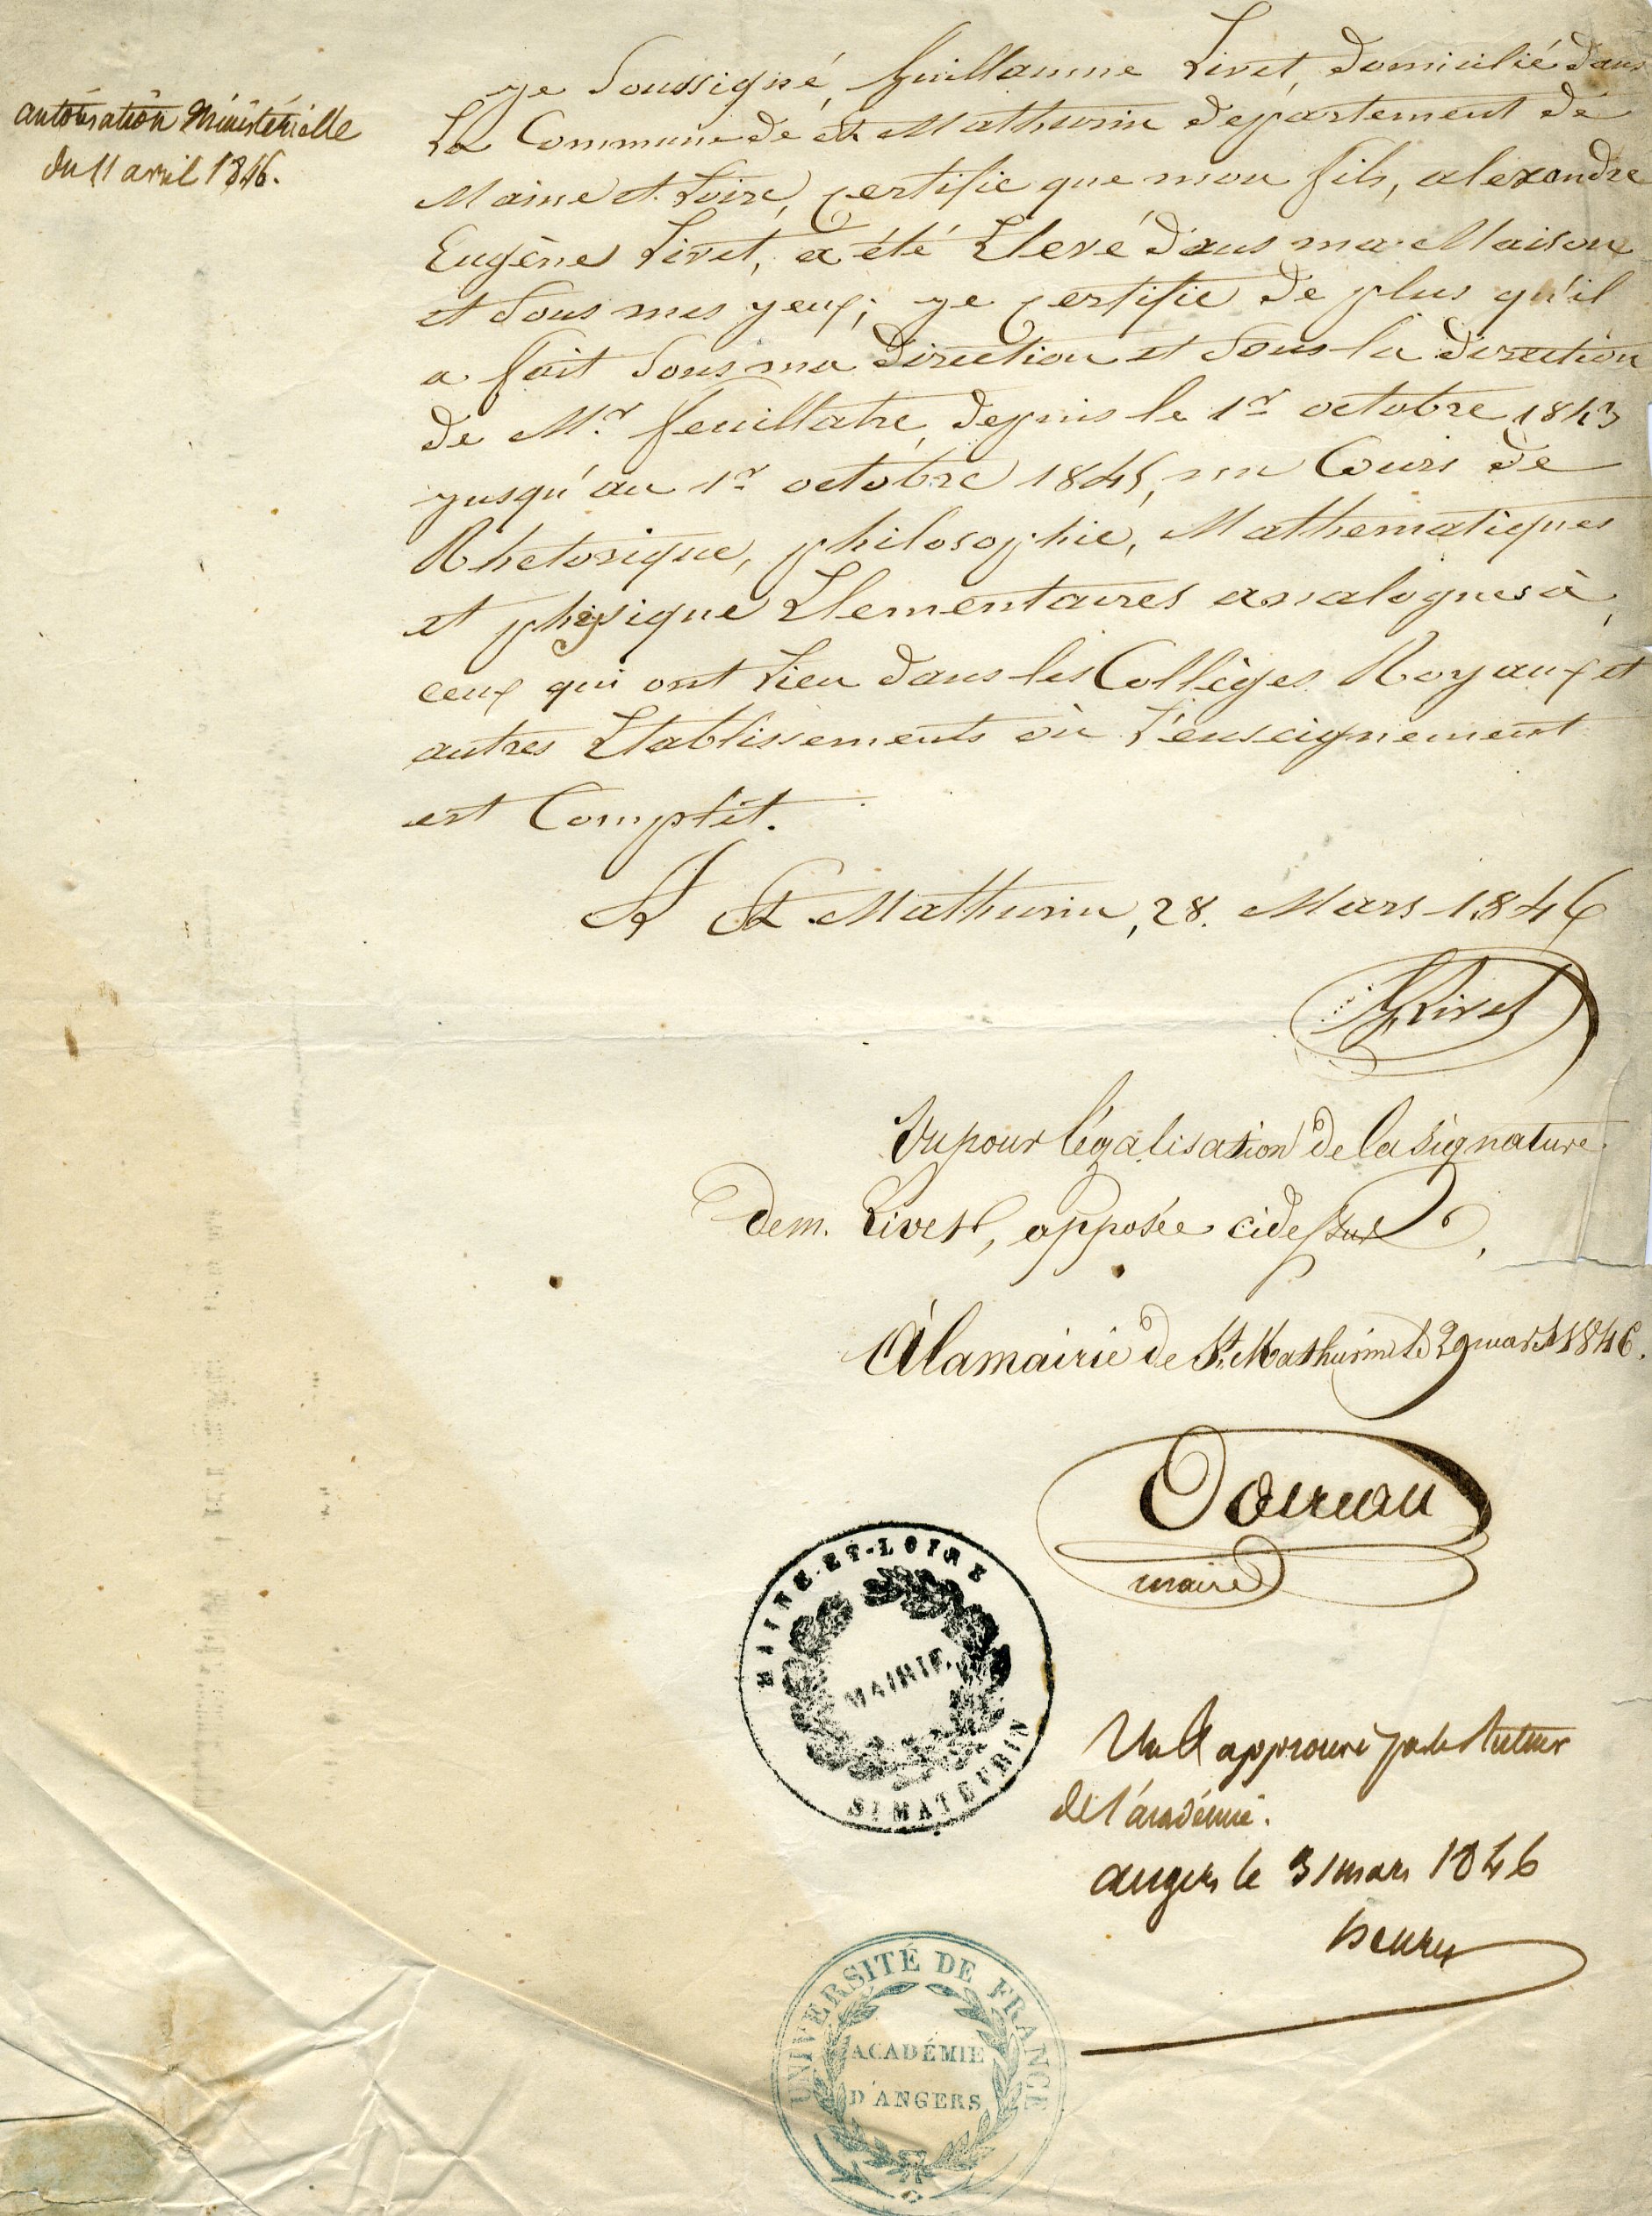 autorisation Ministérielle
du 11 avril 1846.
je soussigné, Guillaume Livet, domicilié dans
La Commune de St Mathurin département de
Maine et Loire, certifie que mon fils, alexandre
Eugène Livet, a été Elevé dans ma Maison
et sous mes yeux; je certifie de plus qu'il
a fait sous ma direction et sous la direction
de Mr. feuillatre, depuis le 1r octobre 1843
jusqu'au 1r octobre 1845, un Cours de
Rhetorique, philosophie, Mathematiques
et physique Elementaires analogues à
ceux qui ont Lieu dans les Collèges Royaux et
autres Etablissements où L'enseignement
est Complèt.
A St. Mathurin, 28. Mars 1846
GLivet
Vu pour légalisation de la signature
de m. Livet, apposée ci dessus,
À la mairie de St. Mathurin le 29 mars 1846.
maire
MAINE-ET-LOIRE
MAIRIE
ST MATHURIN
Vu & approuvé par le Recteur
de l'académie.
angers le 31 mars 1846
henry
UNIVERSITÉ DE FRANCE
ACADÉMIE
D'ANGERS